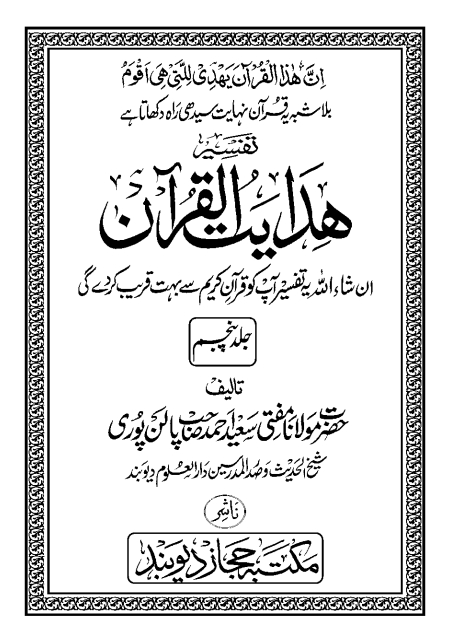 اِنَّ هٰذَا الْقُرْآنَ يَهْدِیْ لِلَّتِیْ هِیَ اَقْوَمُ
بلاشبہ یہ قرآن نہایت سیدھی راہ دکھاتا ہے
تفسیر
ھدایت القرآن
ان شاء اللہ یہ تفسیر آپ کو قرآن کریم سے بہت قریب کردے گی
جلد پنجم
تالیف
حضرت مولانا مفتی سعید احمد صاحب پالن پوری
شیخ الحدیث و صدر المدرسین دارالعلوم دیوبند
ناشر
مکتبہ حجاز دیوبند